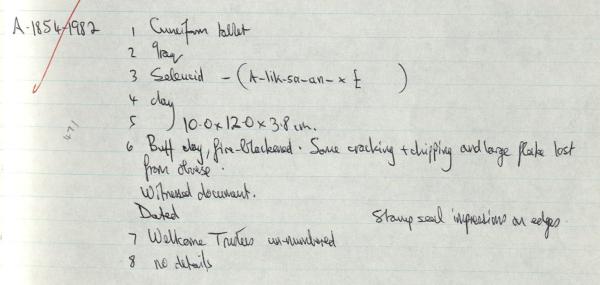 A-1854-1982 1 Cuneiform tablet
2 Iraq
3 Seleucid - (A-lik-sa-an- x ).
4 clay
5 10.0 x 12.0 x 3.8 cm.
6 Buff clay, fire-blackened. Some cracking + chipping and large flake lost
from obverse.
Witnessed document.
Dated Stamp seal impressions on edges.
7 Wellcome Trustees un-numbered
8 no details